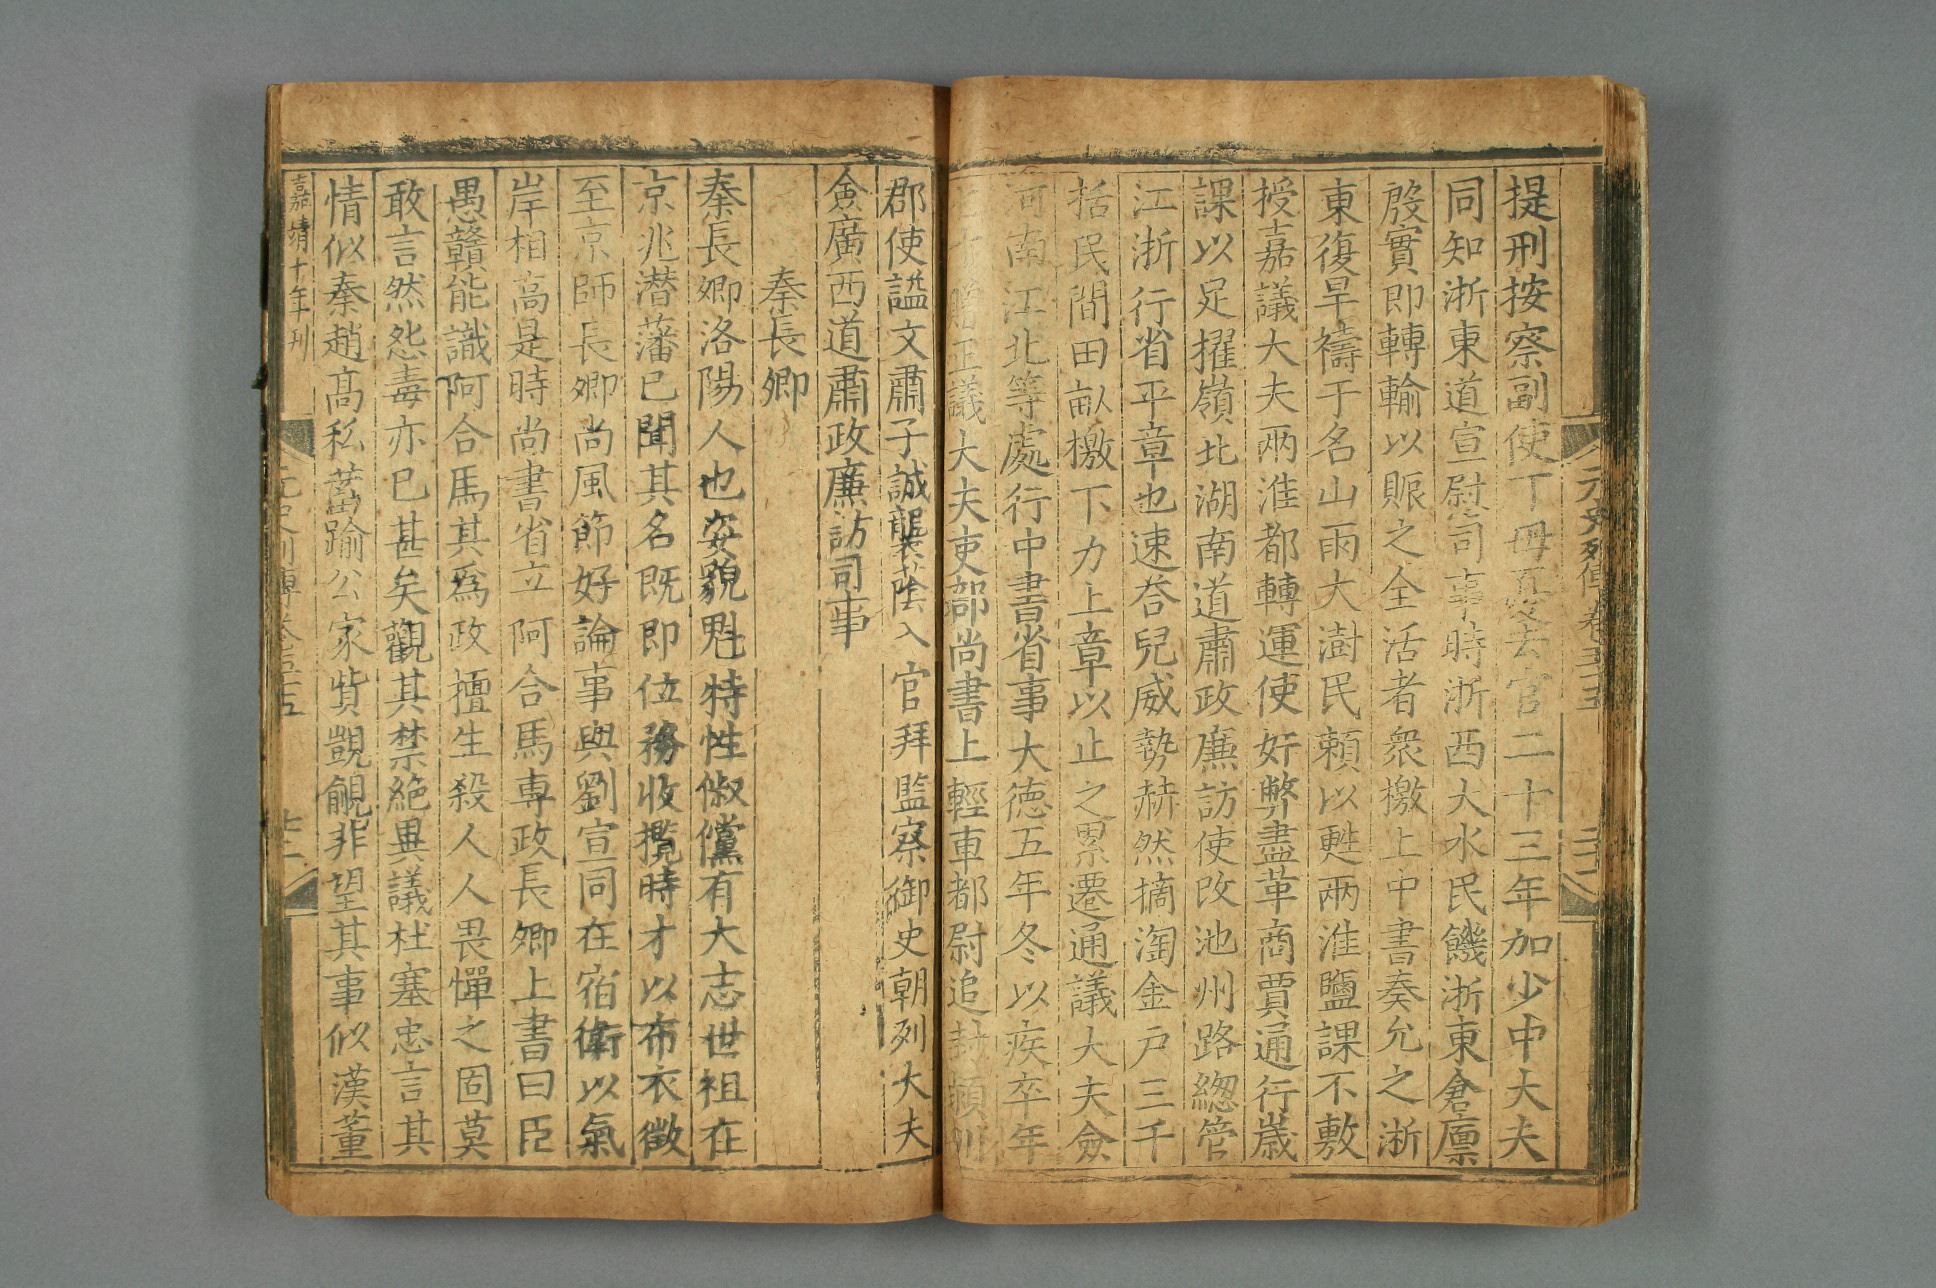 提刑按察副使丁母憂去官二十三年加少中大夫
同知浙東道宣慰司事時浙西大水民饑浙東倉廩
殷實即轉輸以賑之全活者衆檄上中書奏允之浙
東復旱禱于名山雨大澍民頼以甦兩淮鹽課不敷
授嘉議大夫兩淮都轉運使奸弊盡革商賈通行歲
課以足擢嶺北湖南道肅政廉訪使改池州路緫管
江浙行省平章也速荅兒威勢赫然摘淘金戸三千
括民間田畝檄下力上章以止之累遷通議大夫僉
河南江北等處行中書省事大德五年冬以疾卒年
七十贈正議大夫吏部尚書上輕車都尉追封潁川
郡使謚文肅子誠襲蔭入官拜監察御史朝列大夫
僉廣西道肅政廉訪司事
秦長卿
秦長卿洛陽人也姿貌魁特性倜儻有大志世祖在
京兆潜藩已聞其名既即位務收攬時才以布衣徵
至京師長卿尚風節好論事與劉宣同在宿衛以氣
岸相高是時尚書省立阿合馬專政長卿上書曰臣
愚贛能識阿合馬其為政擅生殺人人畏憚之固莫
敢言然怨毒亦已甚矣觀其禁絶異議杜塞忠言其
情似秦趙高私蓄踰公家貲覬覦非望其事似漢董
嘉靖十年刊